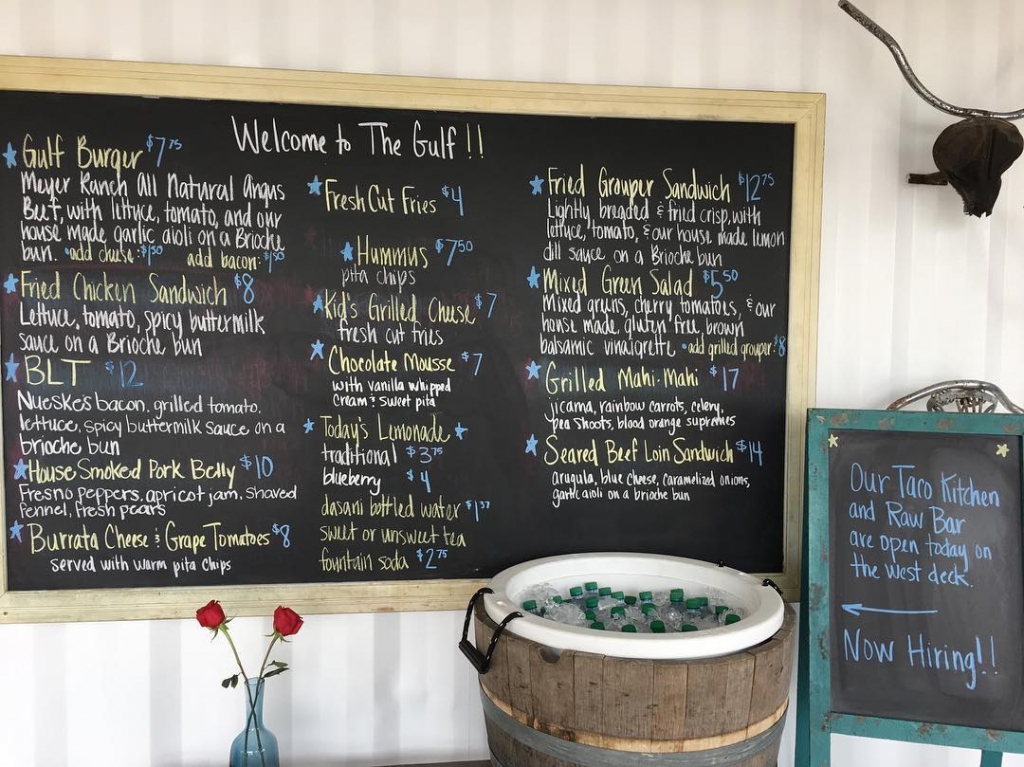 Welcome to The Gulf!!
Gulf Burger $7.75
Meyer Ranch All Natural Angus
Beef, with lettuce, tomato, and our
house made garlic aioli on a Brioche
bun. •add cheese: $1.50 add bacon: $1.50
Fried Chicken Sandwich $8
Lettuce, tomato, spicy buttermilk
sauce on a Brioche bun
BLT $12
Nueske's bacon, grilled tomato,
lettuce, spicy buttermilk sauce on a
brioche bun
House Smoked Pork Belly $10
Fresno peppers, apricot jam, shaved
fennel, fresh pears
Burrata Cheese & Grape Tomatoes $8
served with warm pita chips
Fresh Cut Fries $4
Hummus $7.50
pita chips
Kid's Grilled Cheese $7
fresh cut fries
Chocolate Mousse $7
with vanilla whipped
cream & sweet pita
Today's Lemonade
traditional $3.75
blueberry $4
dasani bottled water $1.37
sweet or unsweet tea
fountain soda $2.75
Fried Grouper Sandwich $12.75
Lightly breaded & fried crisp, with
lettuce, tomato, & our house made lemon
dill sauce on a Brioche bun
Mixed Green Salad $5.50
Mixed greens, cherry tomatoes, & our
house made, gluten free, brown
balsamic vinaigrette •add grilled grouper: $8
Grilled Mahi-Mahi $17
jicama, rainbow carrots, celery,
pea shoots, blood orange supremes
Seared Beef Loin Sandwich $14
arugula, blue cheese, caramelized onions,
garlic aioli on a brioche bun
Our Taco Kitchen
and Raw Bar
are open today on
the west deck.
Now Hiring!!